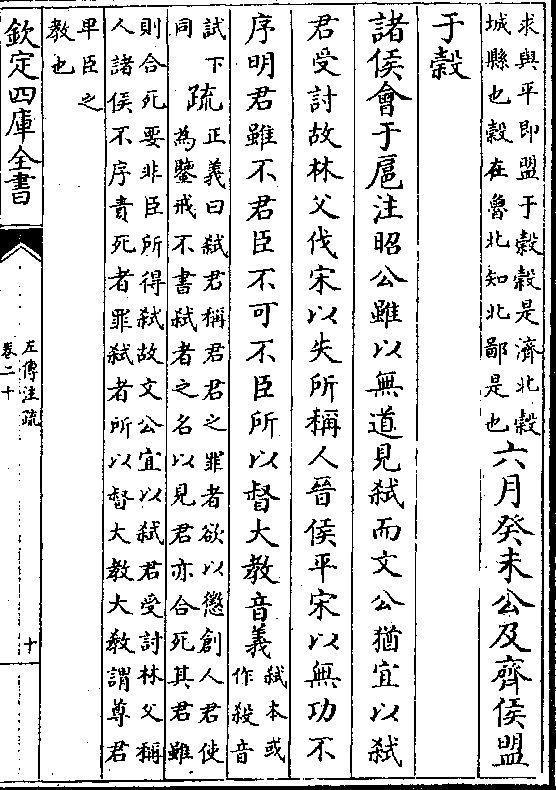 求與平即盟于穀穀是濟北穀
城縣也穀在魯北知北鄙是也
六月癸未公及齊侯盟
于穀
諸侯會于扈注昭公雖以無道見弑而文公猶宜以弑
君受討故林父伐宋以失所稱人晉侯平宋以無功不
序明君雖不君臣不可不臣所以督大教音義
弑本或
作殺音
試下
同
疏
正義曰弑君稱君君之罪者欲以懲創人君使
為鑒戒不書弑者之名以見君亦合死其君雖
則合死要非臣所得弑故文公宜以弑君受討林父稱
人諸侯不序責死者罪弑者所以督大教大教謂尊君
卑臣之
教也
欽定四庫全書
左傳注疏
卷二十
十